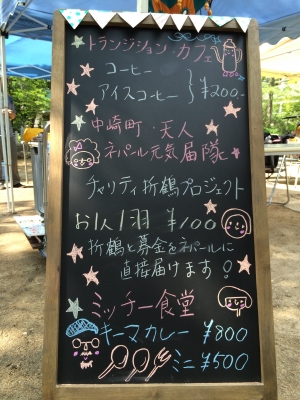 トランジション・カフェ
コーヒー
アイスコーヒー } ¥200-
中崎町・天人
ネパール元気届隊
チャリティ折鶴プロジェクト
お1人1羽 ¥100
折鶴と募金をネパールに
直接届けます!
ミッチー食堂
キーマカレー ¥800
ミニ ¥500